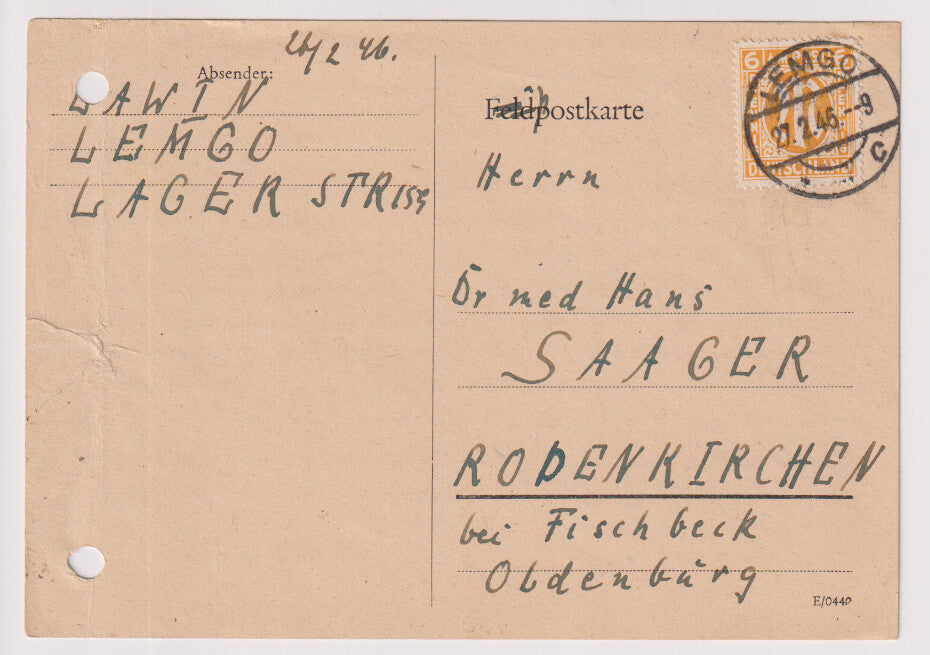 26/2 46.
Absender:
DAWIN
LEMGO
LAGER STR 159
Feldpostkarte
Herrn
Dr med Hans
SAAGER
RODENKIRCHEN
bei Fischbeck
Oldenburg
E/0440
6
DEUTSCHLAND
LEMGO
27.2.46.-9
c